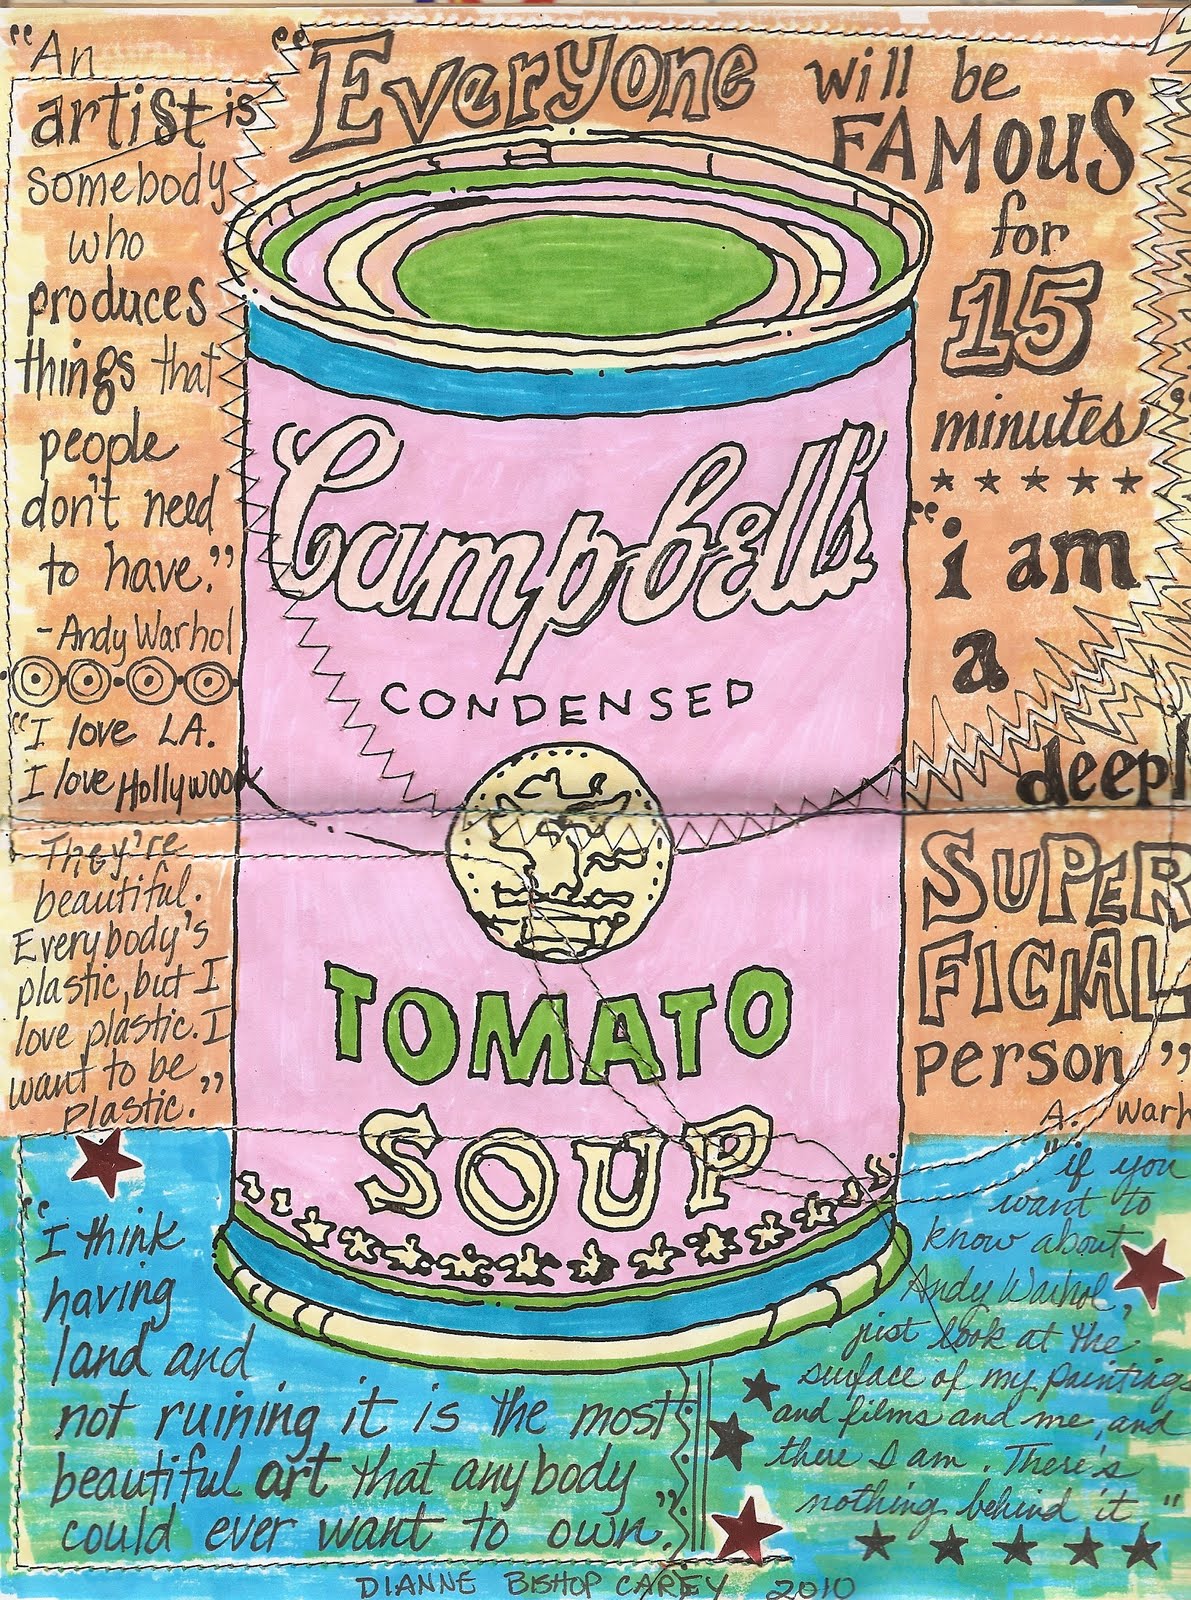 "An
artist is
somebody
who
produces
things that
people
don't need
to have."
-Andy Warhol
"I love LA.
I love Hollywood
They're
beautiful.
Everybody's
plastic, but I
love plastic. I
want to be
plastic."
"Everyone
will be
FAMOUS
for
15
minutes"
"i am
a
deepl
SUPER
FICIAL
person"
A. Warh
Campbell's
CONDENSED
TOMATO
SOUP
"I think
having
land and
not ruining it is the most
beautiful art that anybody
could ever want to own."
"if you
want to
know about
Andy Warhol,
just look at the
surface of my paintings
and films and me, and
there I am. There's
nothing behind it."
DIANNE BISHOP CAREY 2010